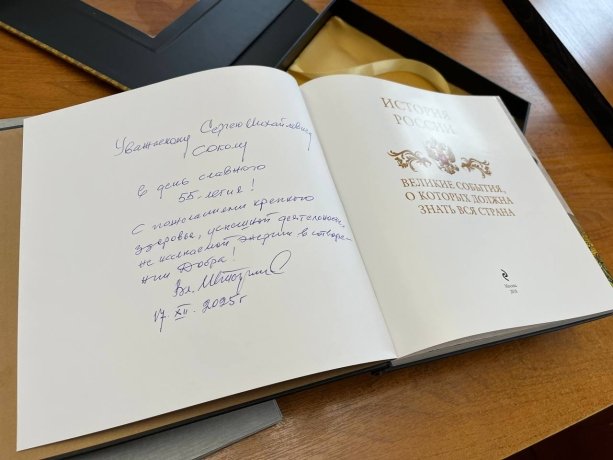 Уважаемому Сергею Михайловичу
Соколу
в день славного
55-летия!
С пожеланиями крепкого
здоровья, успешной деятельности,
не иссякаемой энергии в сотворе-
нии Добра!
Вл.
17. XII. 2025г
ИСТОРИЯ
РОССИИ
ВЕЛИКИЕ СОБЫТИЯ,
О КОТОРЫХ ДОЛЖНА
ЗНАТЬ ВСЯ СТРАНА
Москва